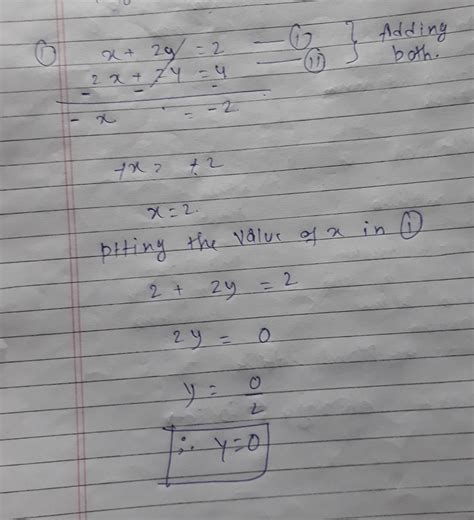 ① x + 2y = 2 — ⓘ } Adding
2x + 2y = 4 — ⓘⓘ both.
- - -
- x = -2
+x = +2
x = 2.
ptting the value of x in ⓘ
2 + 2y = 2
2y = 0
y = 0/2
∴ y=0